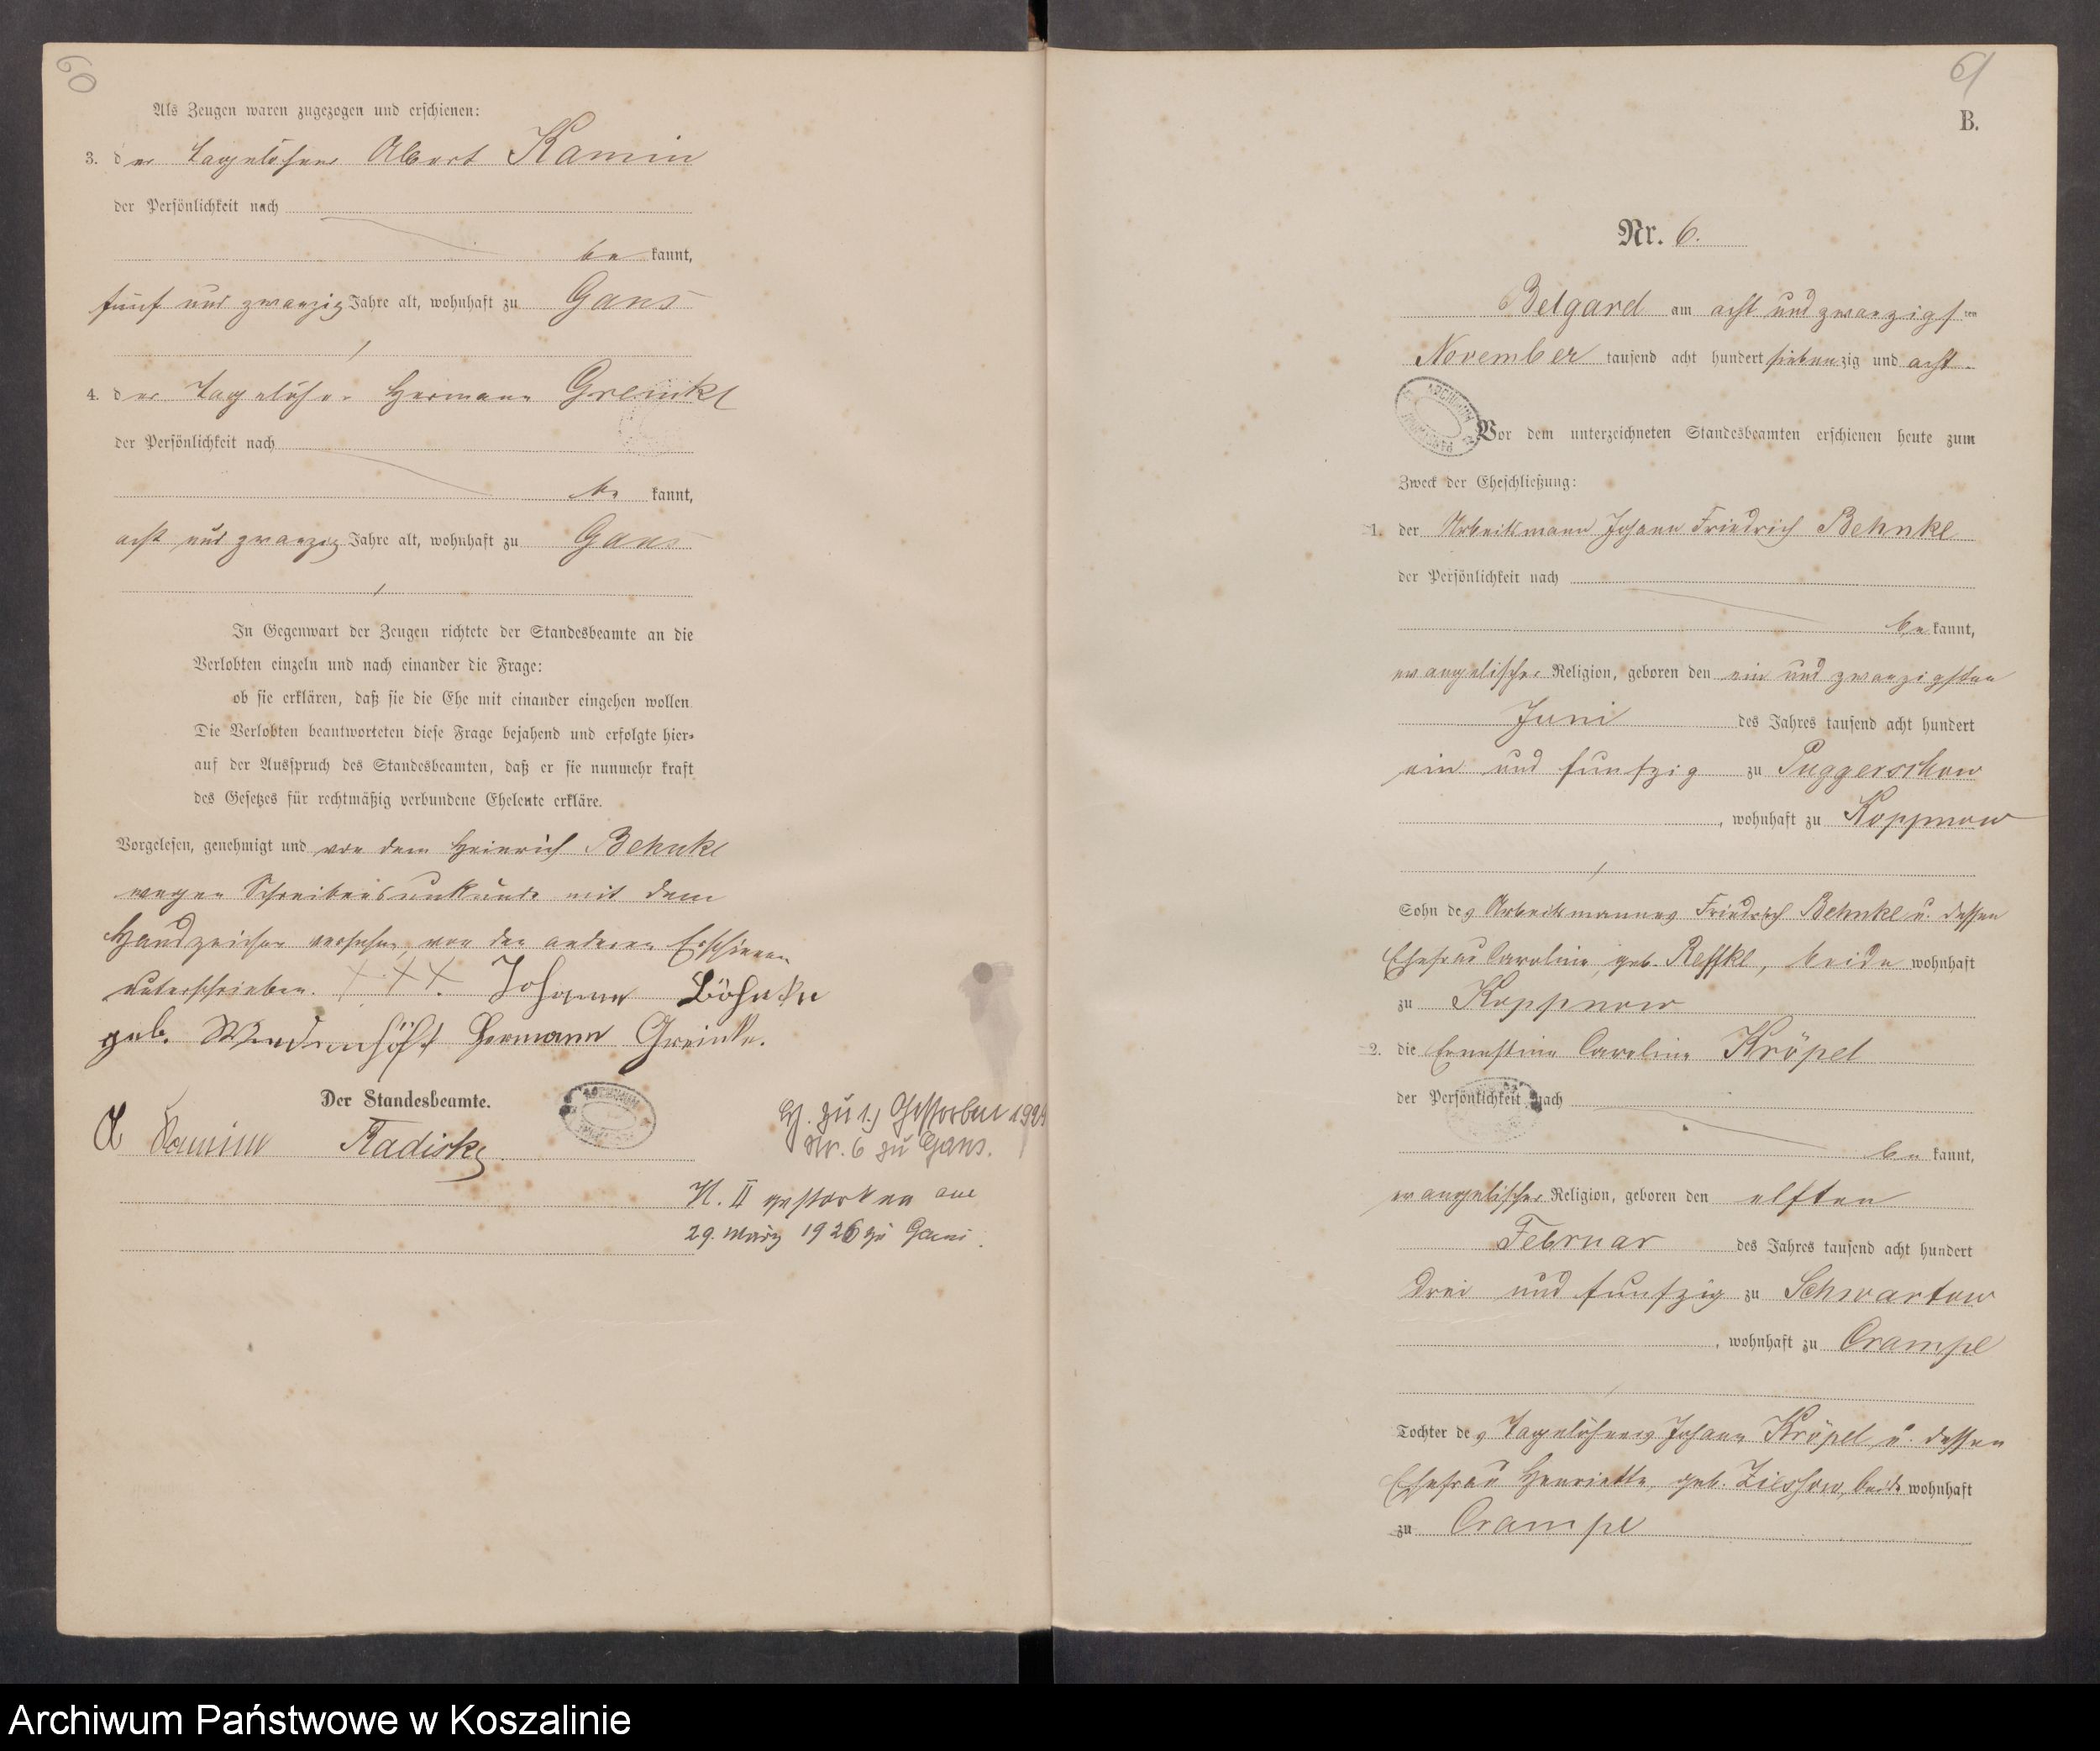 60
Als Zeugen waren zugezogen und erschienen:
3. der Tagelöhner Albert Kamin
der Persönlichkeit nach
be kannt,
fünf und zwanzig Jahre alt, wohnhaft zu Gans
4. der Tagelöhner Hermann Greinke
der Persönlichkeit nach
be kannt,
acht und zwanzig Jahre alt, wohnhaft zu Gans
In Gegenwart der Zeugen richtete der Standesbeamte an die
Verlobten einzeln und nach einander die Frage:
ob sie erklären, daß sie die Ehe mit einander eingehen wollen
Die Verlobten beantworteten diese Frage bejahend und erfolgte hier-
auf der Ausspruch des Standesbeamten, daß er sie nunmehr kraft
des Gesetzes für rechtmäßig verbundene Eheleute erkläre.
Vorgelesen, genehmigt und von dem Heinrich Behnke
wegen Schreibensunkunde mit dem
Handzeichen versehen, von den anderen Erschienen
unterschrieben. +++. Johanne Böhnke
geb. Hermann Greinke.
Der Standesbeamte.
A Kamin Radisky
H. zu 1.) Gestorben 192
Nr. 6 zu Gans.
H. II gestorben am
29. März 1926 zu Gans.
61
B.
Nr. 6.
Belgard am acht und zwanzigsten
November tausend acht hundert siebenzig und acht.
ARCHIWUM
Vor dem unterzeichneten Standesbeamten erschienen heute zum
Zweck der Eheschließung:
1. der Arbeitsmann Johann Friedrich Behnke
der Persönlichkeit nach
be kannt,
evangelischer Religion, geboren den ein und zwanzigsten
Juni des Jahres tausend acht hundert
ein und funfzig zu Puggerschow
, wohnhaft zu Koppnow
Sohn des Arbeitsmannes Friedrich Behnke u. dessen
Ehefrau Caroline, geb. Reffke, beide wohnhaft
zu Koppnow
2. die Ernestine Caroline Kröpel
der Persönlichkeit nach
be kannt,
evangelischer Religion, geboren den elften
Februar des Jahres tausend acht hundert
drei und funfzig zu Schwartow
, wohnhaft zu Crampe
Tochter des Tagelöhners Johann Kröpel u. dessen
Ehefrau Henriette, geb. Ziessow, beide wohnhaft
zu Crampe
Archiwum Państwowe w Koszalinie